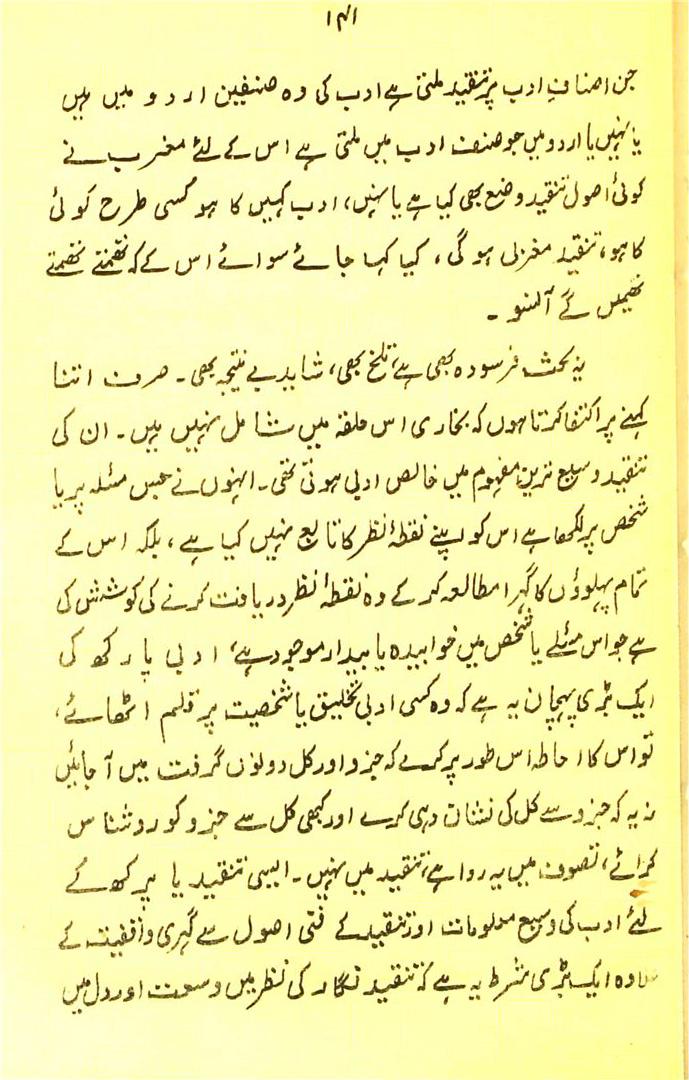 ۱۴۱
جن اصنافِ ادب پر تنقید ملتی ہے ادب کی وہ صنفیں اردو میں ہیں
یا نہیں یا اردو میں جو صنف ادب میں ملتی ہے اس کے لئے مغرب نے
کوئی اصول تنقید وضع بھی کیا ہے یا نہیں، ادب کہیں کا ہو کسی طرح کوئی
کا ہو، تنقید مغربی ہو گی، کیا کہا جائے سوائے اس کے کہ تھمتے تھمتے
تھمیں گے آنسو ۔
یہ بحث فرسودہ بھی ہے، تلخ بھی، شاید بے نتیجہ بھی۔ صرف اتنا
کہنے پر اکتفا کرتا ہوں کہ بخاری اس حلقہ میں شامل نہیں ہیں۔ ان کی
تنقید وسیع ترین مفہوم میں خالص ادبی ہوتی تھی۔ انہوں نے جس مسئلہ پر یا
شخص پر لکھا ہے اس کو اپنے نقطۂ نظر کا تابع نہیں کیا ہے، بلکہ اس کے
تمام پہلوؤں کا گہرا مطالعہ کر کے وہ نقطۂ نظر دریافت کرنے کی کوشش کی
ہے جو اس مسئلے یا شخص میں خوابیدہ یا بیدار موجود ہے، ادبی پارکھ کی
ایک بڑی پہچان یہ ہے کہ وہ کسی ادبی تخلیق یا شخصیت پر قلم اٹھائے،
تو اس کا احاطہ اس طور پر کرے کہ جزو اور کل دونوں گرفت میں آ جائیں
نہ یہ کہ جزو سے کل کی نشان دہی کرے اور کبھی کل سے جزو کو روشناس
کرائے، تصوف میں یہ روا ہے، تنقید میں نہیں۔ ایسی تنقید یا پرکھ کے
لئے ادب کی وسیع معلومات اور تنقید کے فنی اصول سے گہری واقفیت کے
علاوہ ایک بڑی شرط یہ ہے کہ تنقید نگار کی نظر میں وسعت اور دل میں